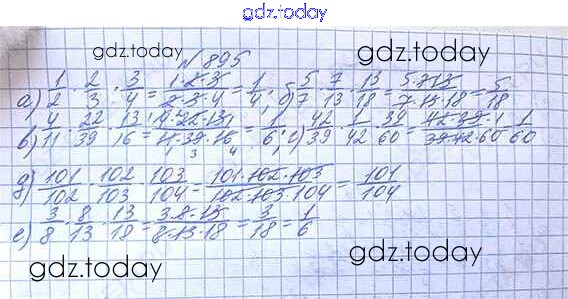 gdz.today
gdz.today № 895 gdz.today
а) 1/2 · 2/3 · 3/4 = 1·2·3/2·3·4 = 1/4; б) 5/7 · 7/13 · 13/18 = 5·7·13/7·13·18 = 5/18
в) 4/11 · 22/39 · 13/16 = 4·22·13/11·39·16 = 1/6; г) 42/39 · 1/42 · 39/60 = 42·39·1/39·42·60 = 1/60
1 3 4
д) 101/102 · 102/103 · 103/104 = 101·102·103/102·103·104 = 101/104
е) 3/8 · 8/13 · 13/18 = 3·8·13/8·13·18 = 3/18 = 1/6
gdz.today gdz.today